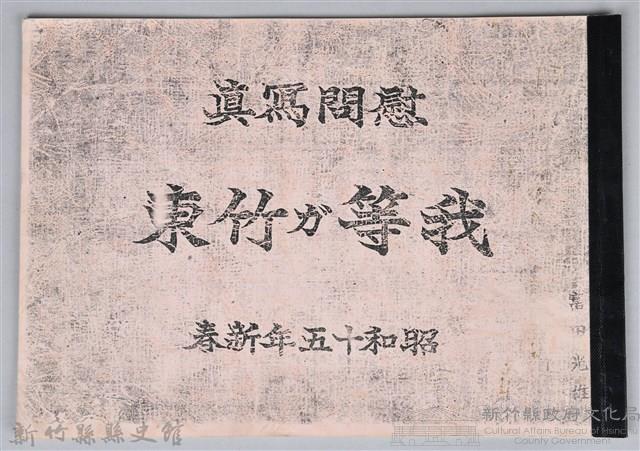 慰問寫眞
我等ガ竹東
昭和十五年新春
富田光雄
新竹縣縣史館
新竹縣政府文化局
Cultural Affairs Bureau of Hsinchu
County Government